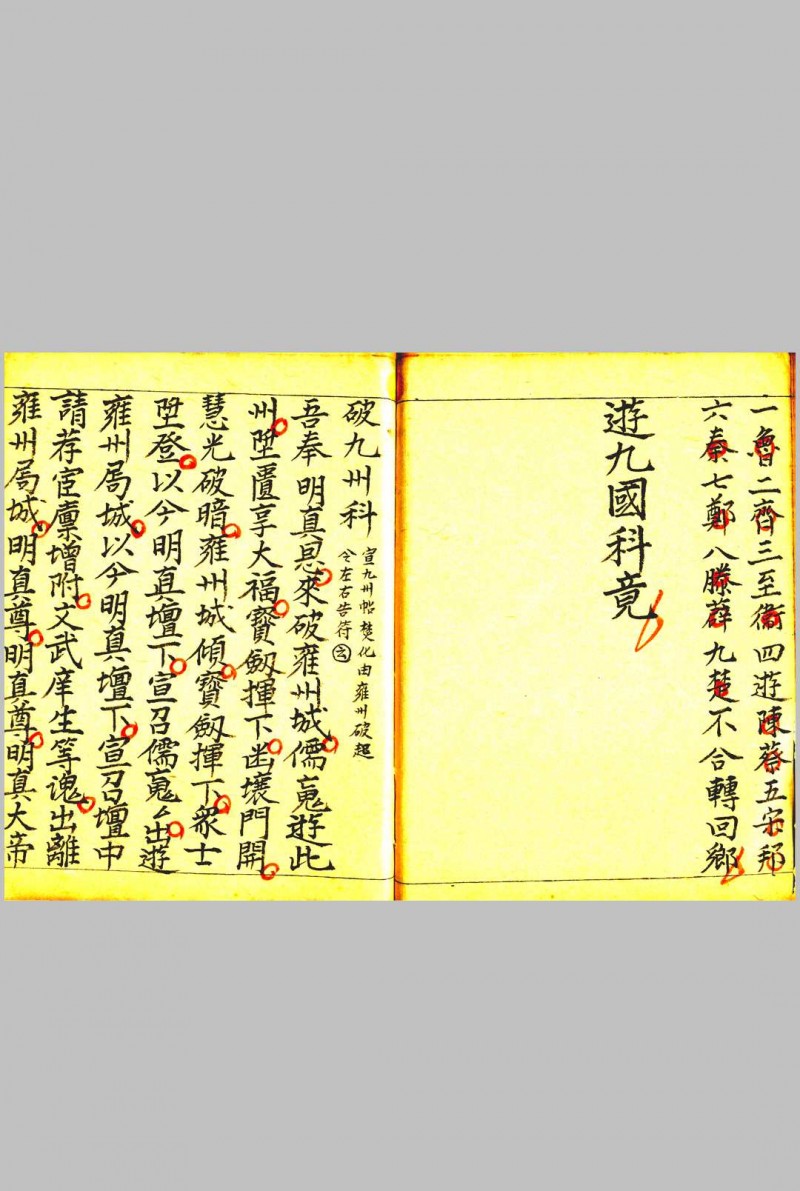 一魯二齊三至衞四遊陳蔡五宋邦
六秦七鄭八滕薛九楚不合轉回鄉
遊九國科竟
破九州科
宣九州帖焚化由雍州破起
仝左右告符玄
吾奉明真恩來破雍州城儒䰟遊此
州墮匱享大福寳劔揮下幽壤門開
慧光破暗雍州城傾寳劔揮下衆士
登以今明真壇下宣召儒䰟々出遊
雍州局城以今明真壇下宣召壇中
請荐宦廪增附文武庠生等魂出離
雍州局城明真尊明真尊明真大帝